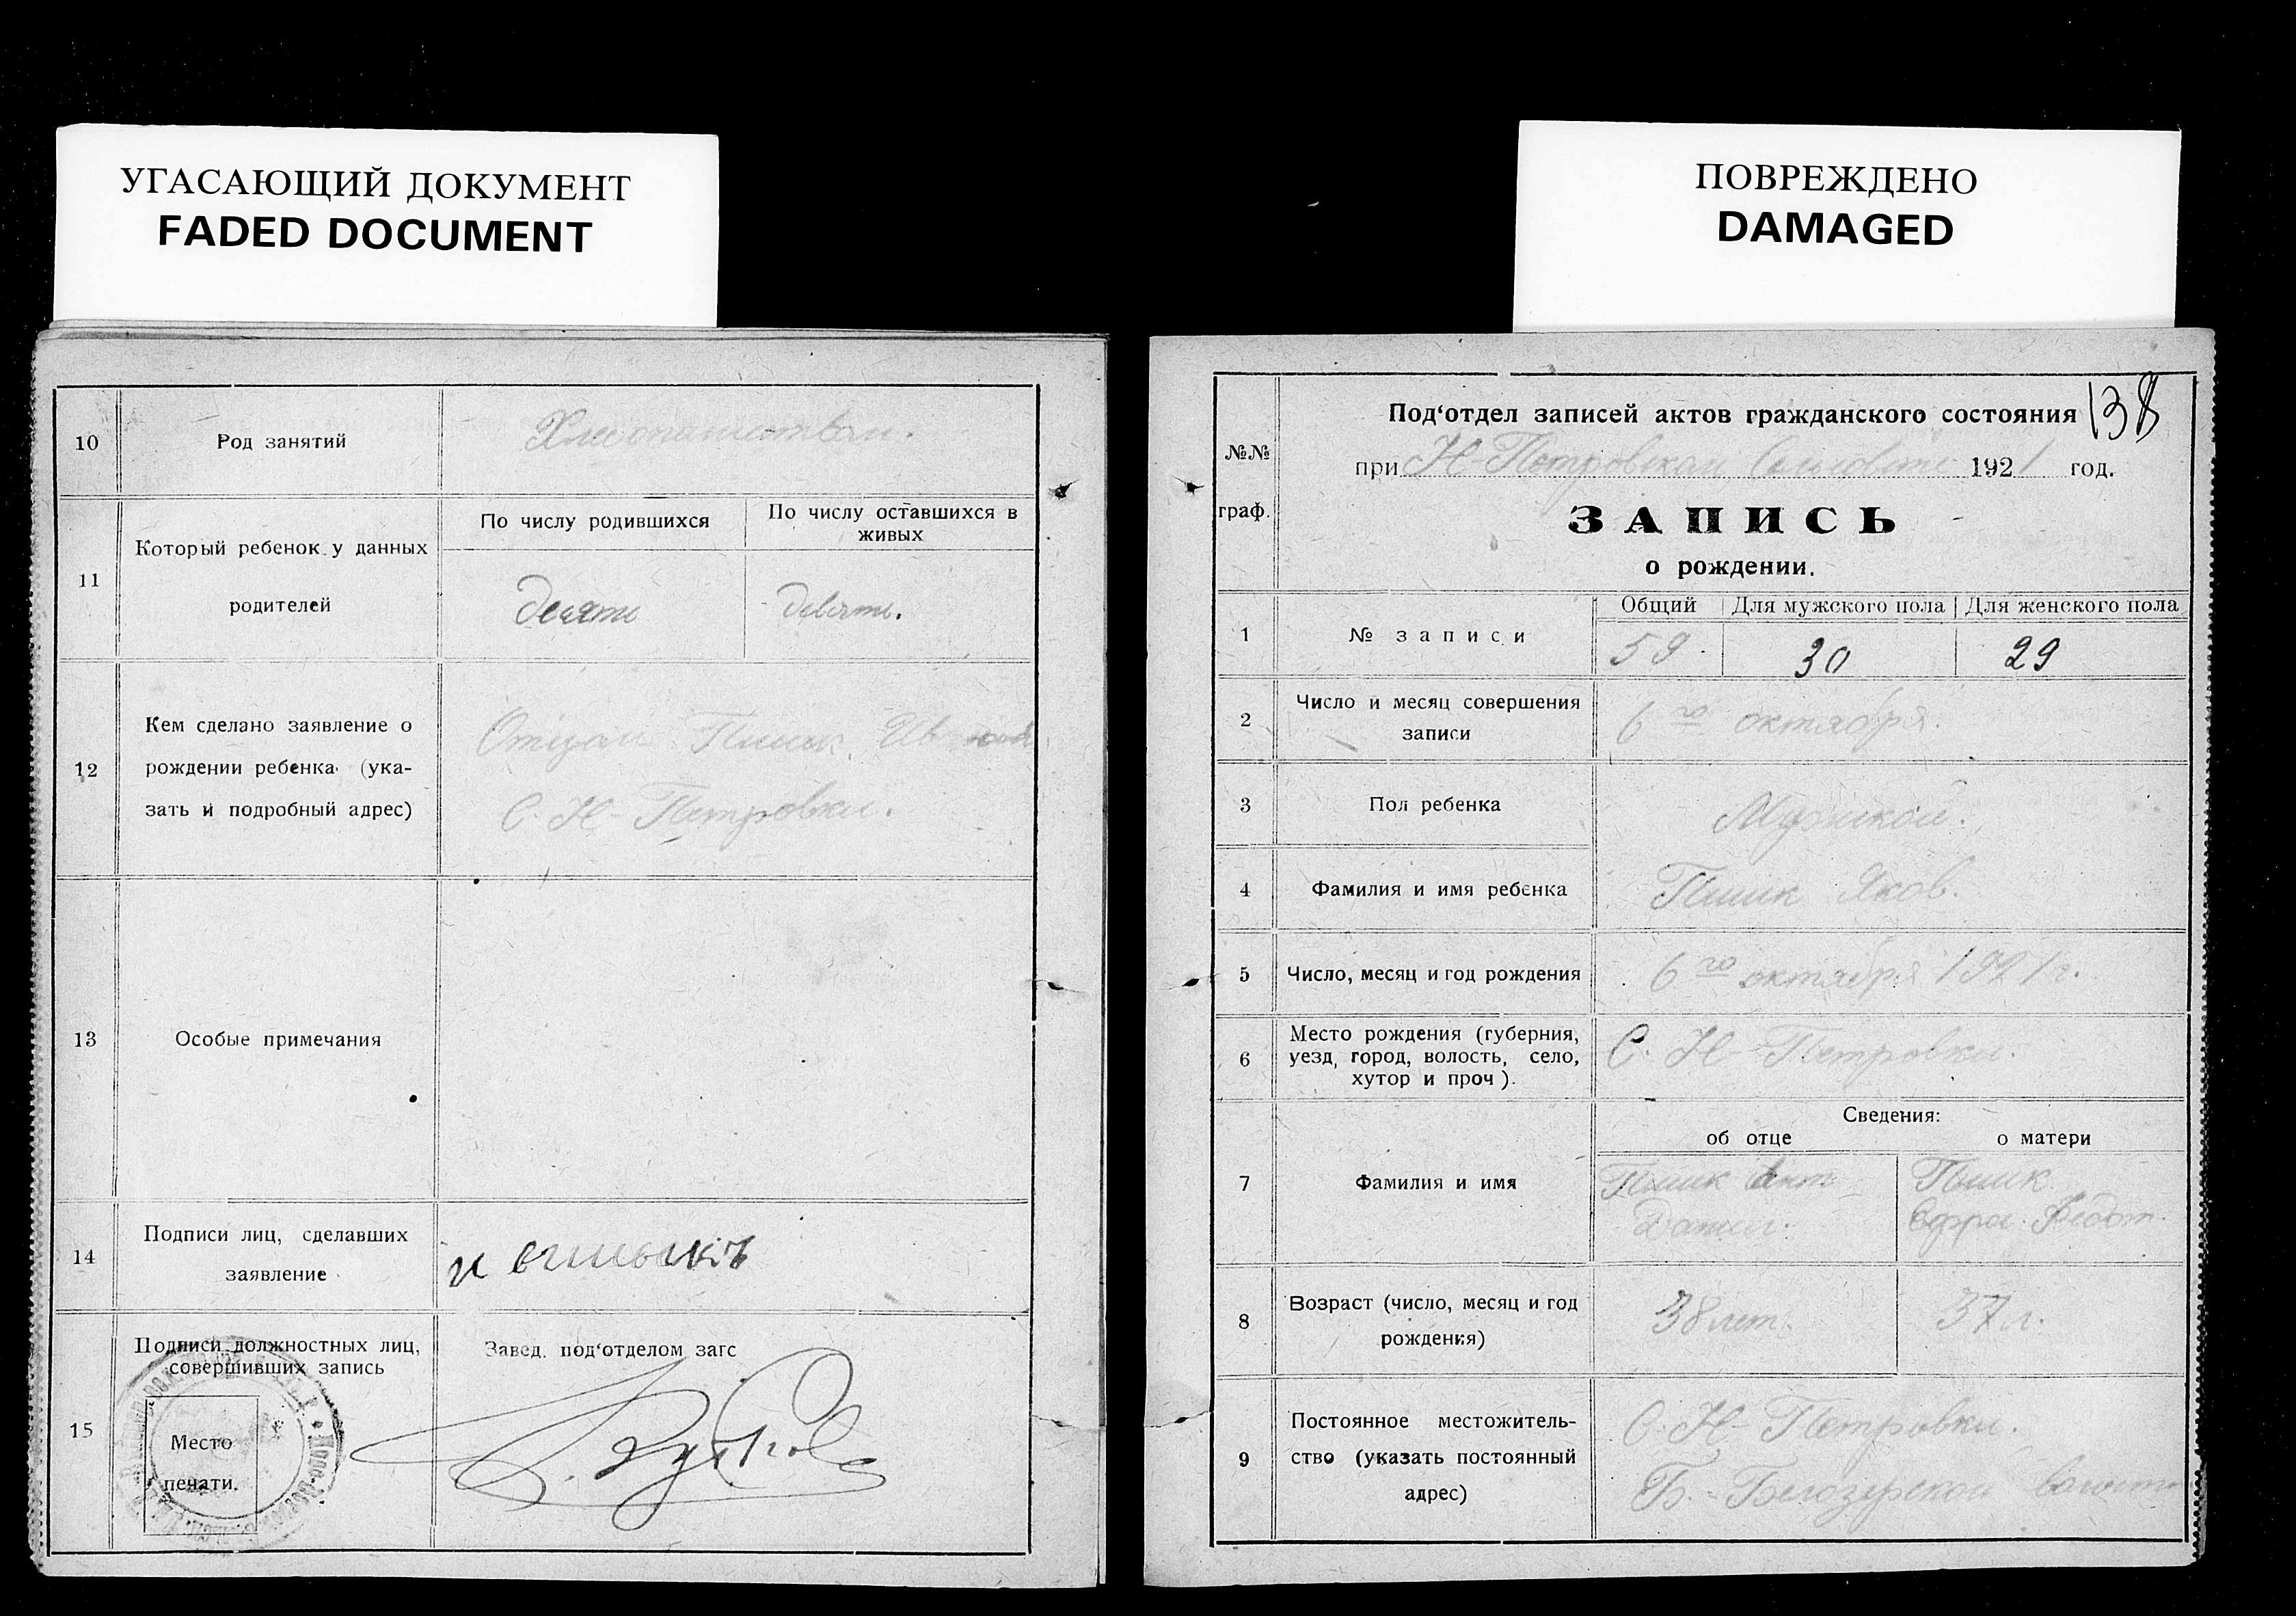 УГАСАЮЩИЙ ДОКУМЕНТ
FADED DOCUMENT
10
Род занятий
Хлебопашеством.
11
Который ребенок у данных
родителей
По числу родившихся
По числу оставшихся в
живых
Десять
Девять.
12
Кем сделано заявление о
рождении ребенка (ука-
зать и подробный адрес)
Отцом Пшик
С. Н-Петровки.
13
Особые примечания
14
Подписи лиц, сделавших
заявление
15
Подписи должностных лиц,
совершивших запись
Место
печати.
Завед. под‘отделом загс
ПОВРЕЖДЕНО
DAMAGED
138
№№
граф.
Под‘отдел записей актов гражданского состояния
при Н Петровская 1921 год.
ЗАПИСЬ
о рождении.
1
№ записи
Общий
Для мужского пола
Для женского пола
59.
30
29
2
Число и месяц совершения
записи
6го октября.
3
Пол ребенка
Мужской.
4
Фамилия и имя ребенка
Пшик Яков.
5
Число, месяц и год рождения
6го октября 1921 г.
6
Место рождения (губерния,
уезд, город, волость, село,
хутор и проч).
С. Н-Петровки.
7
Фамилия и имя
Сведения:
об отце
о матери
Пшик
Пшик
Федот.
8
Возраст (число, месяц и год
рождения)
38 лет.
37 л.
9
Постоянное местожитель-
ство (указать постоянный
адрес)
С. Н-Петровки.
Б.-Белозерской волости